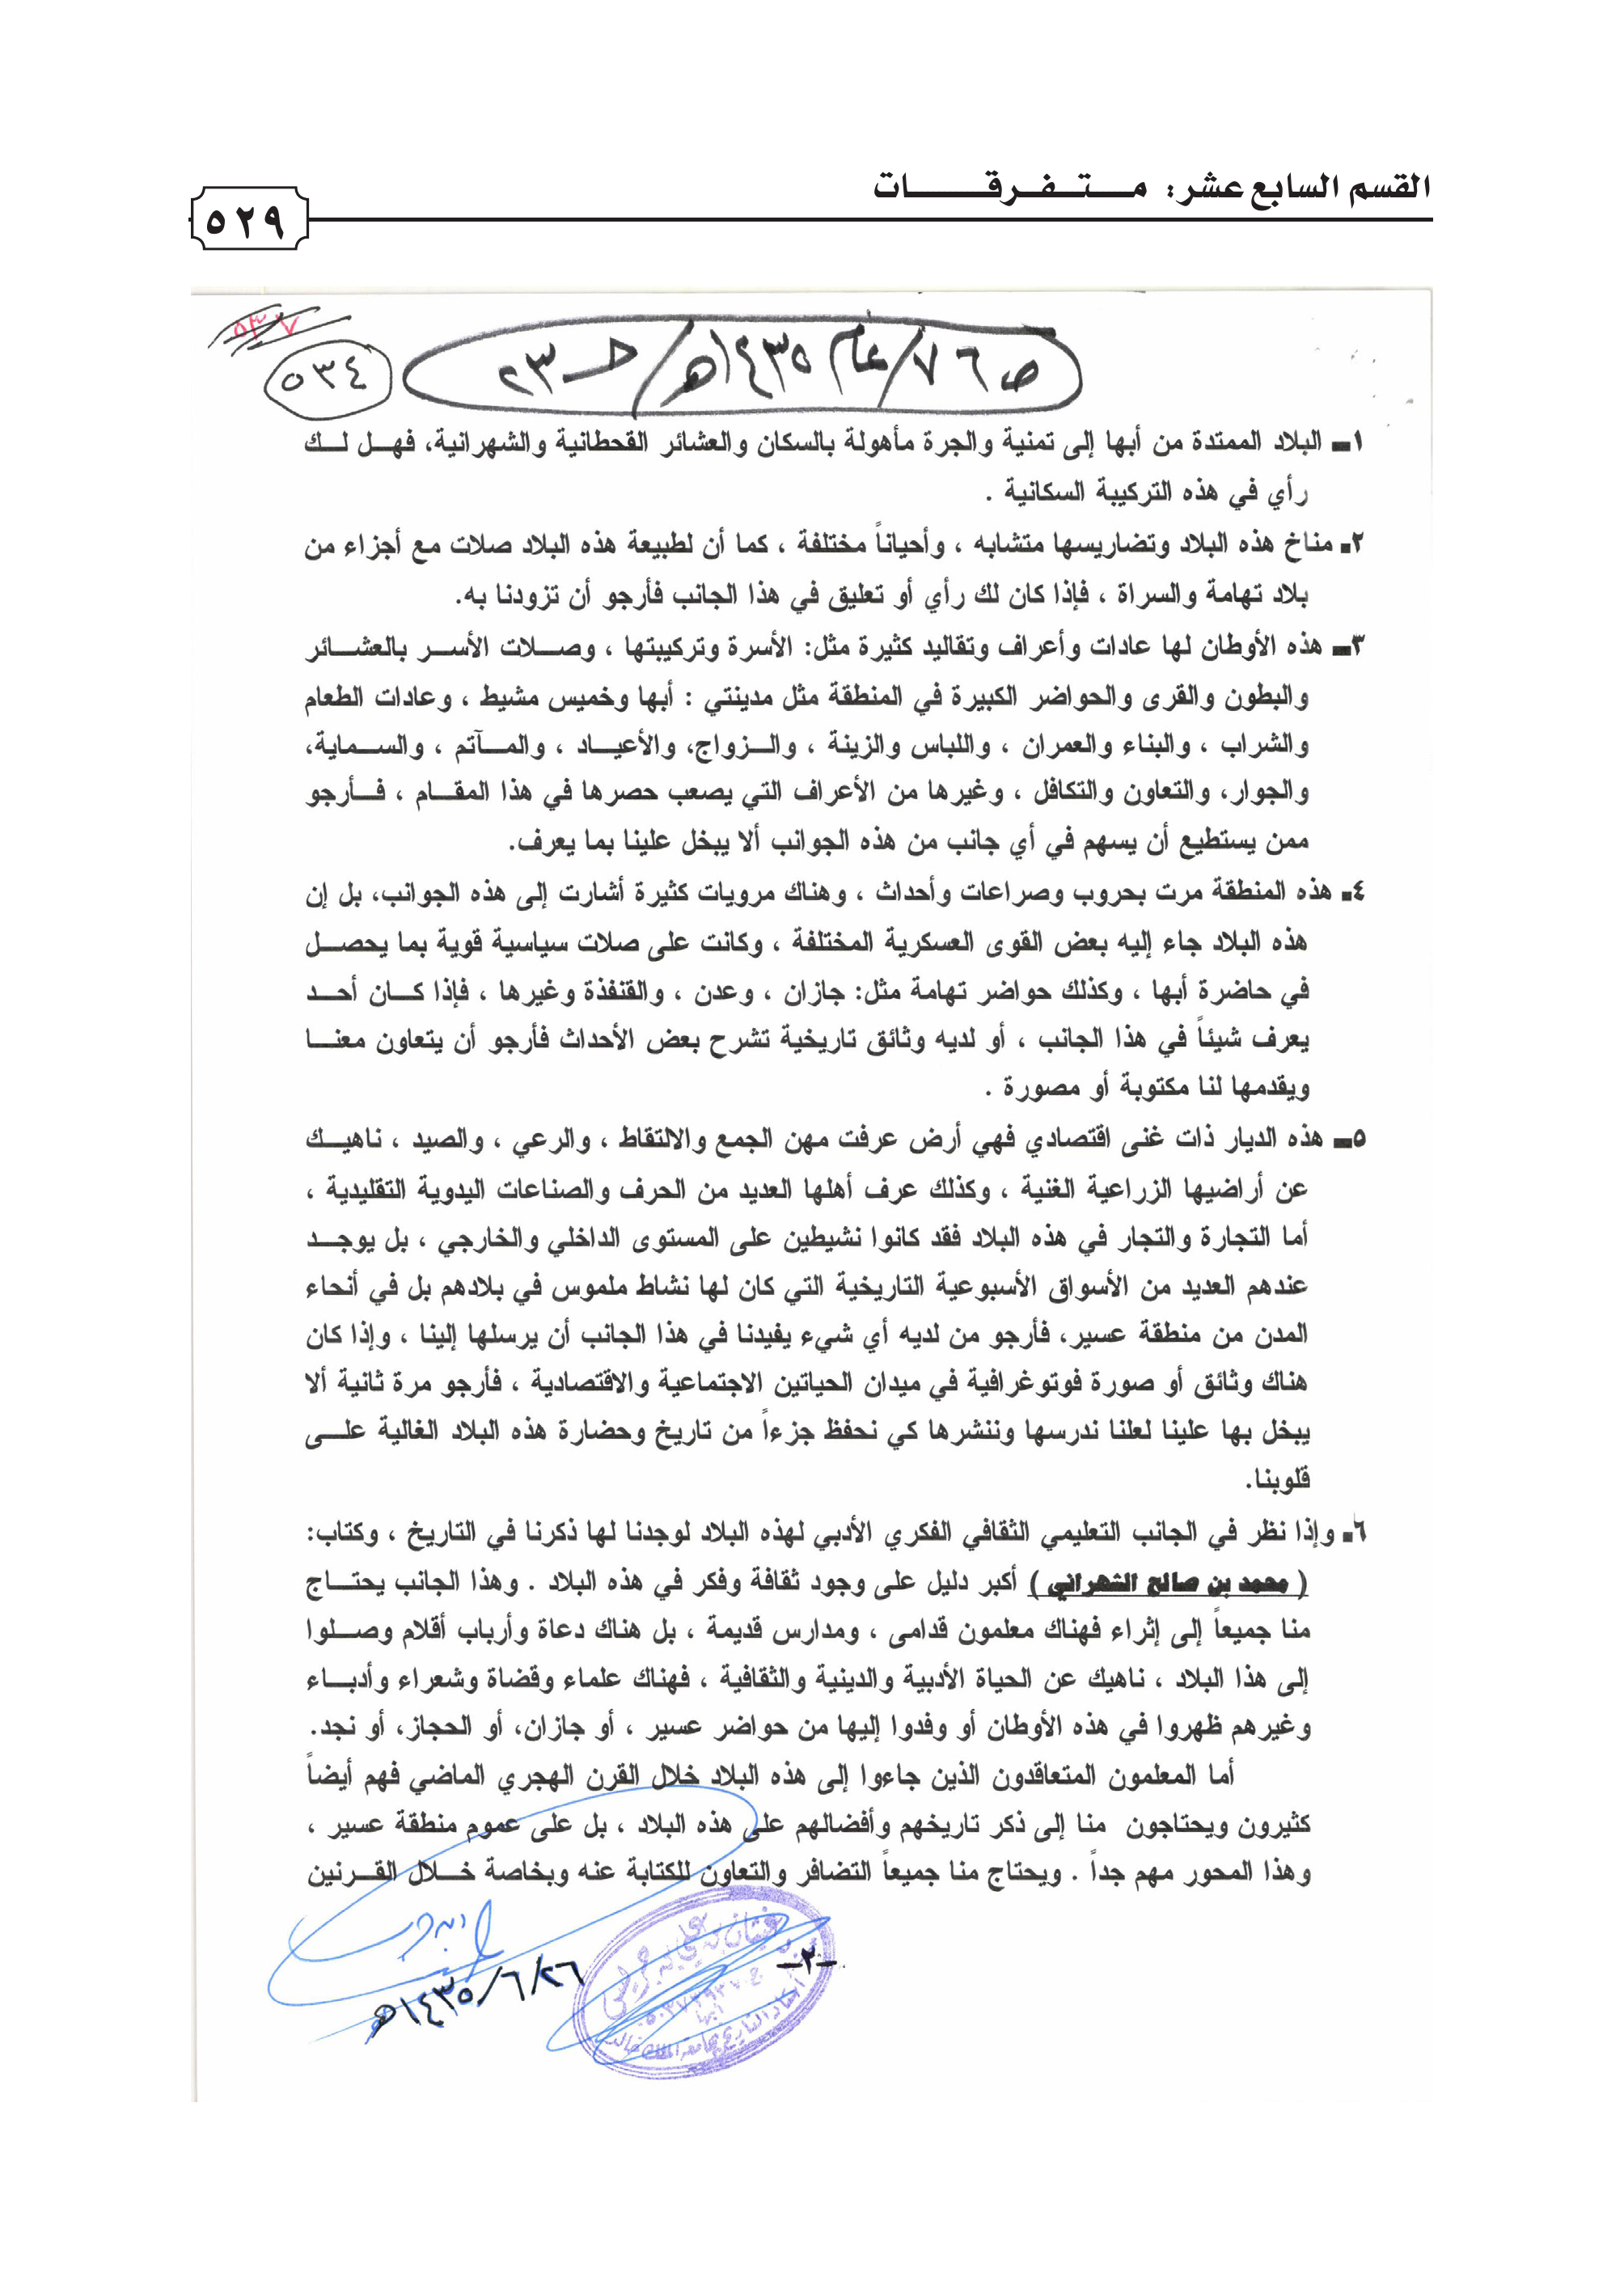 القسم السابع عشر: متفرقات
٥٢٩
٥٣٧
٥٣٤
ص٧٦/عام ١٤٣٥هـ/ حـ ٢٣
١ـ البلاد الممتدة من أبها إلى تمنية والجرة مأهولة بالسكان والعشائر القحطانية والشهرانية، فهل لك
رأي في هذه التركيبة السكانية .
٢ـ مناخ هذه البلاد وتضاريسها متشابه ، وأحياناً مختلفة ، كما أن لطبيعة هذه البلاد صلات مع أجزاء من
بلاد تهامة والسراة ، فإذا كان لك رأي أو تعليق في هذا الجانب فأرجو أن تزودنا به.
٣ـ هذه الأوطان لها عادات وأعراف وتقاليد كثيرة مثل: الأسرة وتركيبتها ، وصلات الأسر بالعشائر
والبطون والقرى والحواضر الكبيرة في المنطقة مثل مدينتي : أبها وخميس مشيط ، وعادات الطعام
والشراب ، والبناء والعمران ، واللباس والزينة ، والزواج، والأعياد ، والمآتم ، والسماية،
والجوار، والتعاون والتكافل ، وغيرها من الأعراف التي يصعب حصرها في هذا المقام ، فأرجو
ممن يستطيع أن يسهم في أي جانب من هذه الجوانب ألا يبخل علينا بما يعرف.
٤ـ هذه المنطقة مرت بحروب وصراعات وأحداث ، وهناك مرويات كثيرة أشارت إلى هذه الجوانب، بل إن
هذه البلاد جاء إليه بعض القوى العسكرية المختلفة ، وكانت على صلات سياسية قوية بما يحصل
في حاضرة أبها ، وكذلك حواضر تهامة مثل: جازان ، وعدن ، والقنفذة وغيرها ، فإذا كان أحد
يعرف شيئاً في هذا الجانب ، أو لديه وثائق تاريخية تشرح بعض الأحداث فأرجو أن يتعاون معنا
ويقدمها لنا مكتوبة أو مصورة .
٥ـ هذه الديار ذات غنى اقتصادي فهي أرض عرفت مهن الجمع والالتقاط ، والرعي ، والصيد ، ناهيك
عن أراضيها الزراعية الغنية ، وكذلك عرف أهلها العديد من الحرف والصناعات اليدوية التقليدية ،
أما التجارة والتجار في هذه البلاد فقد كانوا نشيطين على المستوى الداخلي والخارجي ، بل يوجد
عندهم العديد من الأسواق الأسبوعية التاريخية التي كان لها نشاط ملموس في بلادهم بل في أنحاء
المدن من منطقة عسير، فأرجو من لديه أي شيء يفيدنا في هذا الجانب أن يرسلها إلينا ، وإذا كان
هناك وثائق أو صورة فوتوغرافية في ميدان الحياتين الاجتماعية والاقتصادية ، فأرجو مرة ثانية ألا
يبخل بها علينا لعلنا ندرسها وننشرها كي نحفظ جزءاً من تاريخ وحضارة هذه البلاد الغالية على
قلوبنا.
٦ـ وإذا نظر في الجانب التعليمي الثقافي الفكري الأدبي لهذه البلاد لوجدنا لها ذكرنا في التاريخ ، وكتاب:
( محمد بن صالح الشهراني ) أكبر دليل على وجود ثقافة وفكر في هذه البلاد . وهذا الجانب يحتاج
منا جميعاً إلى إثراء فهناك معلمون قدامى ، ومدارس قديمة ، بل هناك دعاة وأرباب أقلام وصلوا
إلى هذا البلاد ، ناهيك عن الحياة الأدبية والدينية والثقافية ، فهناك علماء وقضاة وشعراء وأدباء
وغيرهم ظهروا في هذه الأوطان أو وفدوا إليها من حواضر عسير ، أو جازان، أو الحجاز، أو نجد.
أما المعلمون المتعاقدون الذين جاءوا إلى هذه البلاد خلال القرن الهجري الماضي فهم أيضاً
كثيرون ويحتاجون منا إلى ذكر تاريخهم وأفضالهم على هذه البلاد ، بل على عموم منطقة عسير ،
وهذا المحور مهم جداً . ويحتاج منا جميعاً التضافر والتعاون للكتابة عنه وبخاصة خلال القرنين
ـ٢ـ
غيثان بن علي بن جريس
أبها
أستاذ التاريخ بجامعة الملك خالد
١٤٣٥/٦/٢٦هـ